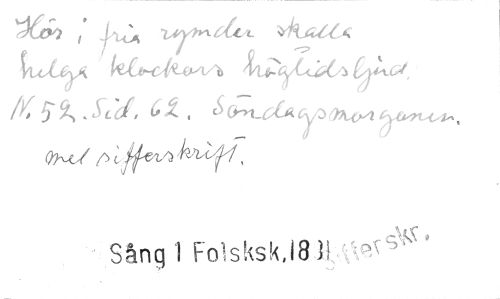 Hör i fria rymder skalla
helga klockors högtidsljud.
N. 52. Sid. 62. Söndagsmorgonen.
mel sifferskrift.
Sång 1 Folsksk, 18 sifferskr.